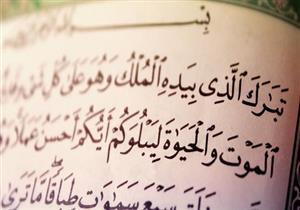 بِسْمِ
تَبَٰرَكَ ٱلَّذِى بِيَدِهِ ٱلْمُلْكُ وَهُوَ عَلَىٰ كُلِّ شَىْءٍ
ٱلْمَوْتَ وَٱلْحَيَوٰةَ لِيَبْلُوَكُمْ أَيُّكُمْ أَحْسَنُ عَمَلًا
سَبْعَ سَمَٰوَٰتٍ طِبَاقًا مَّا تَرَىٰ